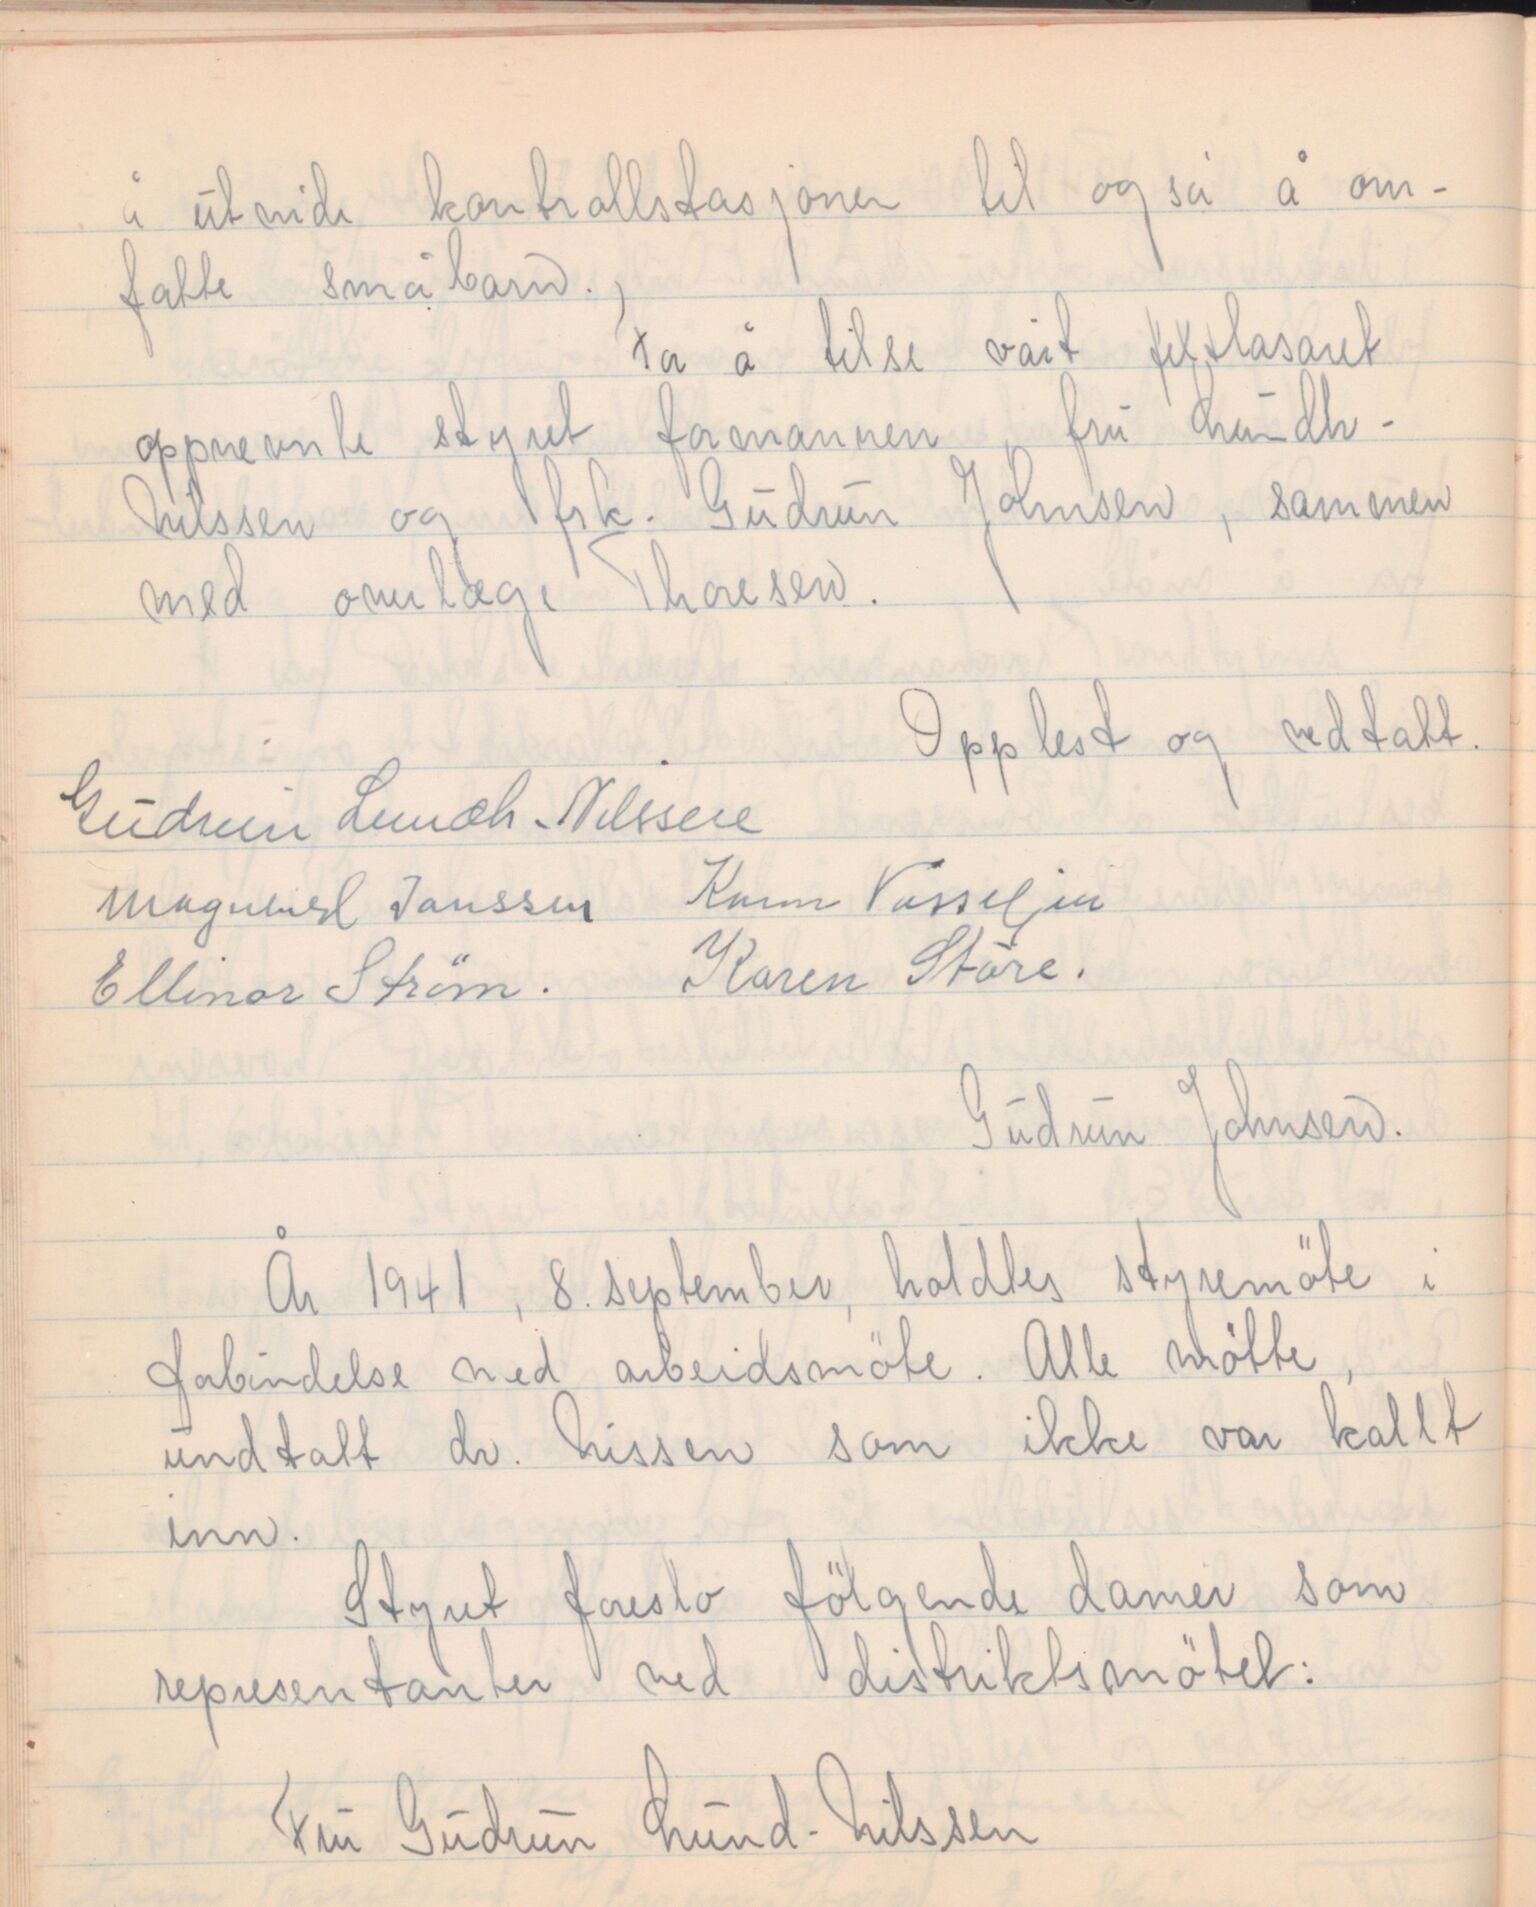 å utvide kontrollstasjonen til også å om-
fatte småbarn.
For å tilse vårt feltlasaret
oppnevnte styret formannen, fru Lundh-
Nilssen og frk. Gudrun Johnsen, sammen
med overlæge Thoresen.
Opplest og vedtatt.
Gudrun Lundh-Nilssen
Magnhild Janssen Karen Vasseljin
Ellinor Ström. Karen Störe.
Gudrun Johnsen.
År 1941, 8. september, holdtes styremöte i
forbindelse med arbeidsmöte. Alle mötte,
undtatt dr. Nissen som ikke var kallt
inn.
Styret foreslo fölgende damer som
representanter ved distriktsmötet:
Fru Gudrun Lund-Nilssen